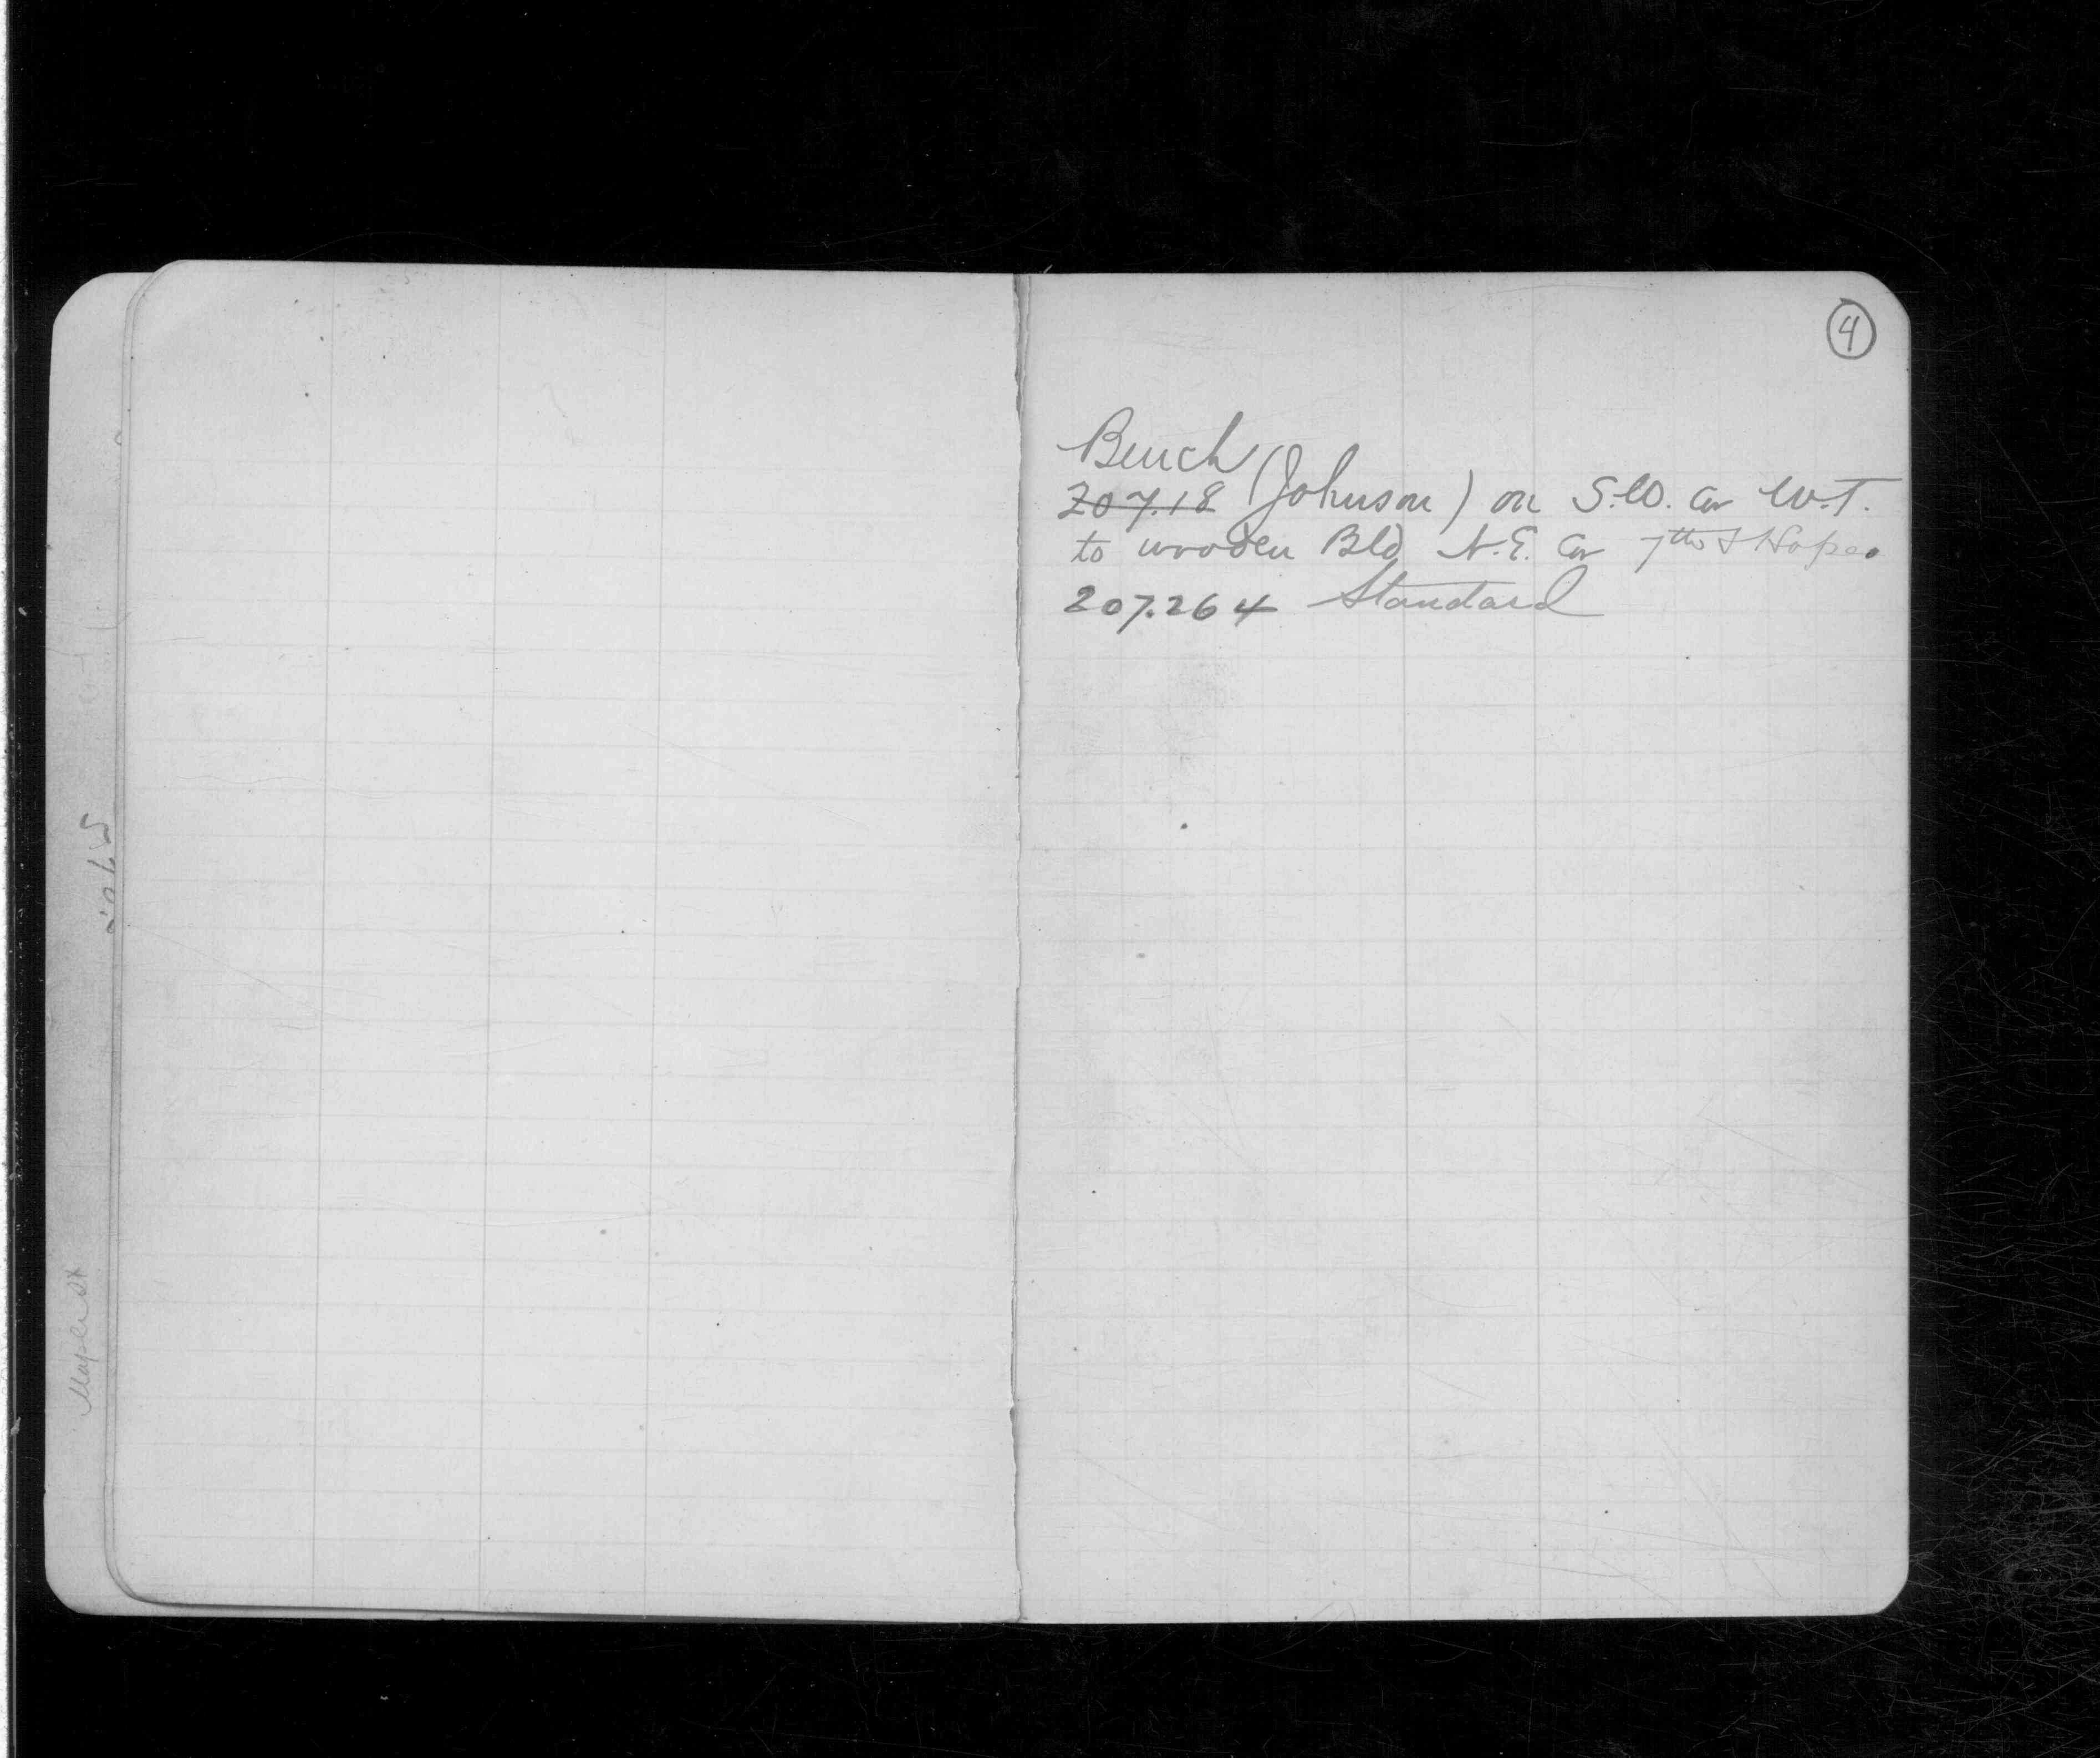 4
Bench
207.18 (Johnson) on S.W. Cor W.T.
to wooden Bld N.E. Cor 7th & Hope.
207.264 Standard
Maple St